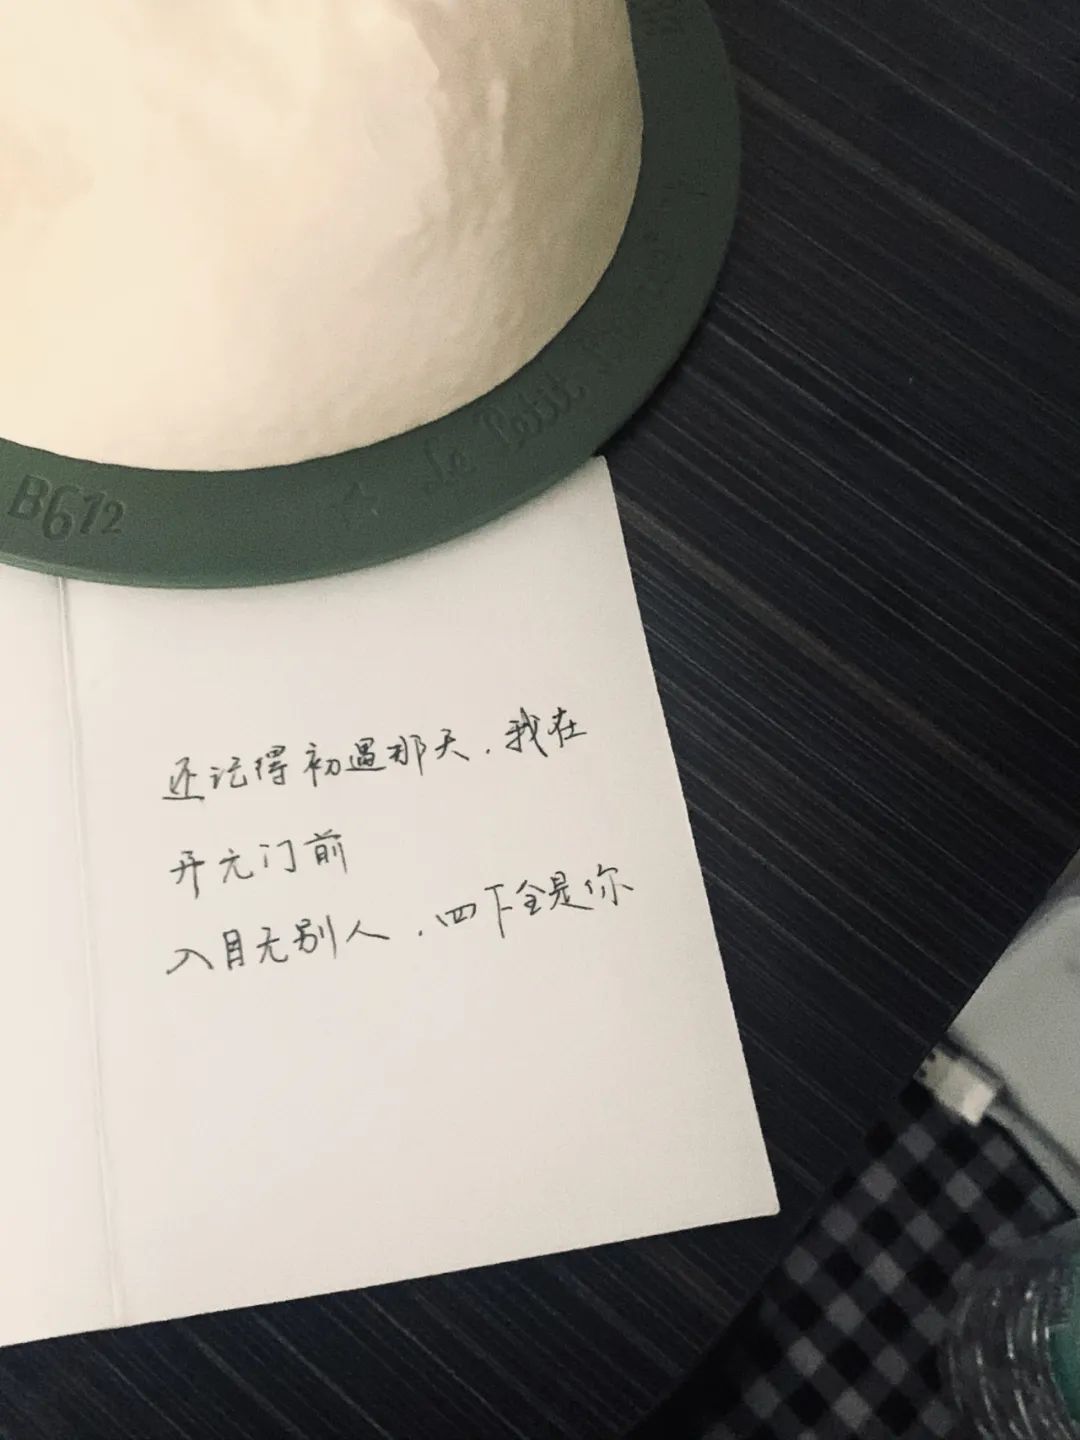 B612 ☆ Le Petit Prince
还记得初遇那天.我在
开元门前
入目无别人.四下全是你